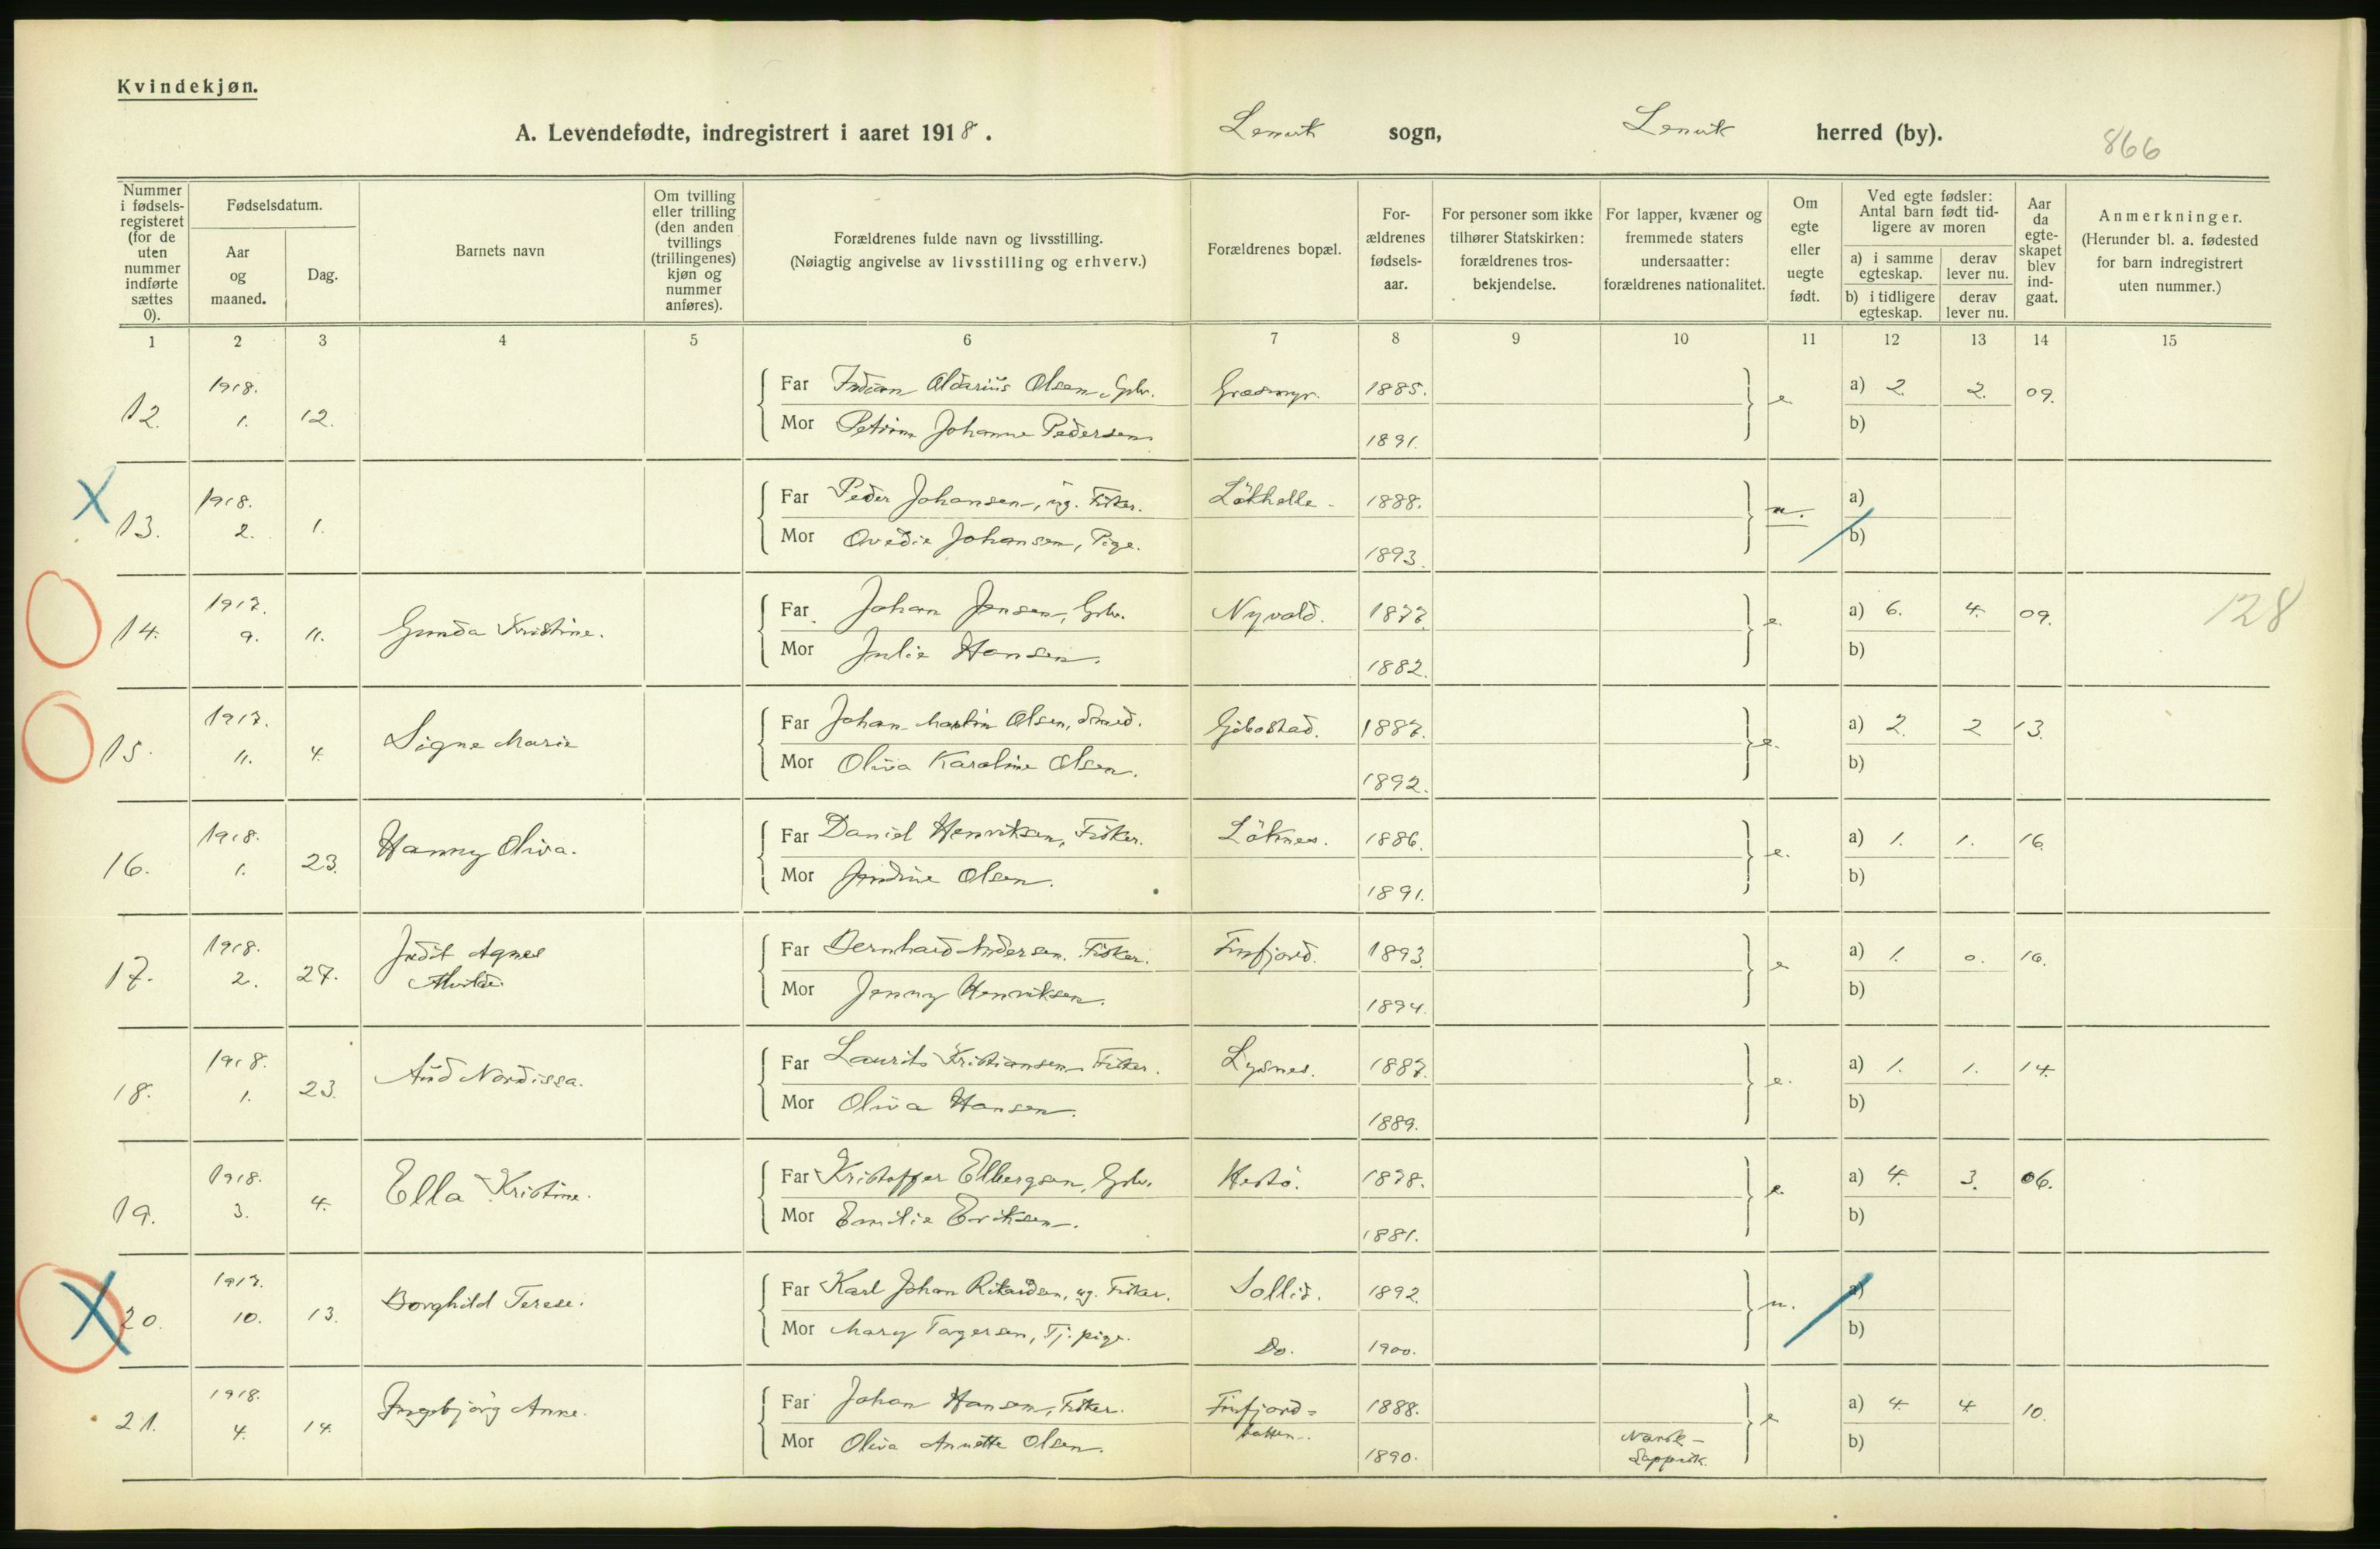 Kvindekjøn.
A. Levendefødte, indregistrert i aaret 1918. Lenvik sogn, Lenvik herred (by). 866
Nummer i fødselsregisteret (for de uten nummer indførte sættes 0).
Fødselsdatum.
Aar og maaned.
Dag.
Barnets navn
Om tvilling eller trilling (den anden tvillings (trillingenes) kjøn og nummer anføres).
Forældrenes fulde navn og livsstilling.
(Nøiagtig angivelse av livsstilling og erhverv.)
Forældrenes bopæl.
Forældrenes fødselsaar.
For personer som ikke tilhører Statskirken: forældrenes trosbekjendelse.
For lapper, kvæner og fremmede staters undersaatter: forældrenes nationalitet.
Om egte eller uegte født.
Ved egte fødsler: Antal barn født tidligere av moren
a) i samme egteskap. derav lever nu.
b) i tidligere egteskap. derav lever nu.
Aar da egteskapet blev indgaat.
Anmerkninger.
(Herunder bl. a. fødested for barn indregistrert uten nummer.)
1 2 3 4 5 6 7 8 9 10 11 12 13 14 15
12. 1918. 1. 12. Far Aldarius Olsen, Gbr. Græsmyr. 1885. e a) 2. 2. 09.
Mor Petrine Johanne Pedersen 1891. b)
X 13. 1918. 2. 1. Far Peder Johansen, ug. Fisker. Løkhelle 1888. u. a)
Mor Ovedie Johansen, Pige. 1893. b)
14. 1917. 9. 11. Gunda Kristine. Far Johan Jensen, Gbr. Nyvold. 1877. e. a) 6. 4. 09. 128
Mor Julie Hansen. 1882. b)
15. 1917. 11. 4. Signe Marie Far Johan Martin Olsen, Smed. Gibostad. 1887. e. a) 2. 2 13.
Mor Oliva Karoline Olsen. 1892. b)
16. 1918. 1. 23. Hanny Oliva. Far Daniel Henriksen, Fisker. Løknes. 1886. e. a) 1. 1. 16.
Mor Jendine Olsen. 1891. b)
17. 1918. 2. 27. Judit Agnes Far Bernhard Andersen. Fisker. Finfjord. 1893. e a) 1. 0. 16.
Mor Jenny Henriksen. 1894. b)
18. 1918. 1. 23. Aud Nordissa. Far Laurits Kristiansen Fisker. Lysnes. 1887. e. a) 1. 1. 14.
Mor Oliva Hansen. 1889. b)
19. 1918. 3. 4. Ella Kristine. Far Kristoffer Elbergsen, Gbr. Hestö. 1878. e. a) 4. 3. 06.
Mor Emilie Eriksen. 1881. b)
X 20. 1917. 10. 13. Borghild Terese. Far Karl Johan Rikardsen, ug. Fisker. Sollid. 1892. u. a)
Mor Mary Torgersen, Tj. pige. Do. 1900. b)
21. 1918. 4. 14. Ingebjörg Anne. Far Johan Hansen, Fisker. Finfjord= 1888. e a) 4. 4. 10.
Mor Oliva Annette Olsen. botten. 1890. Norsk- Lappisk. b)